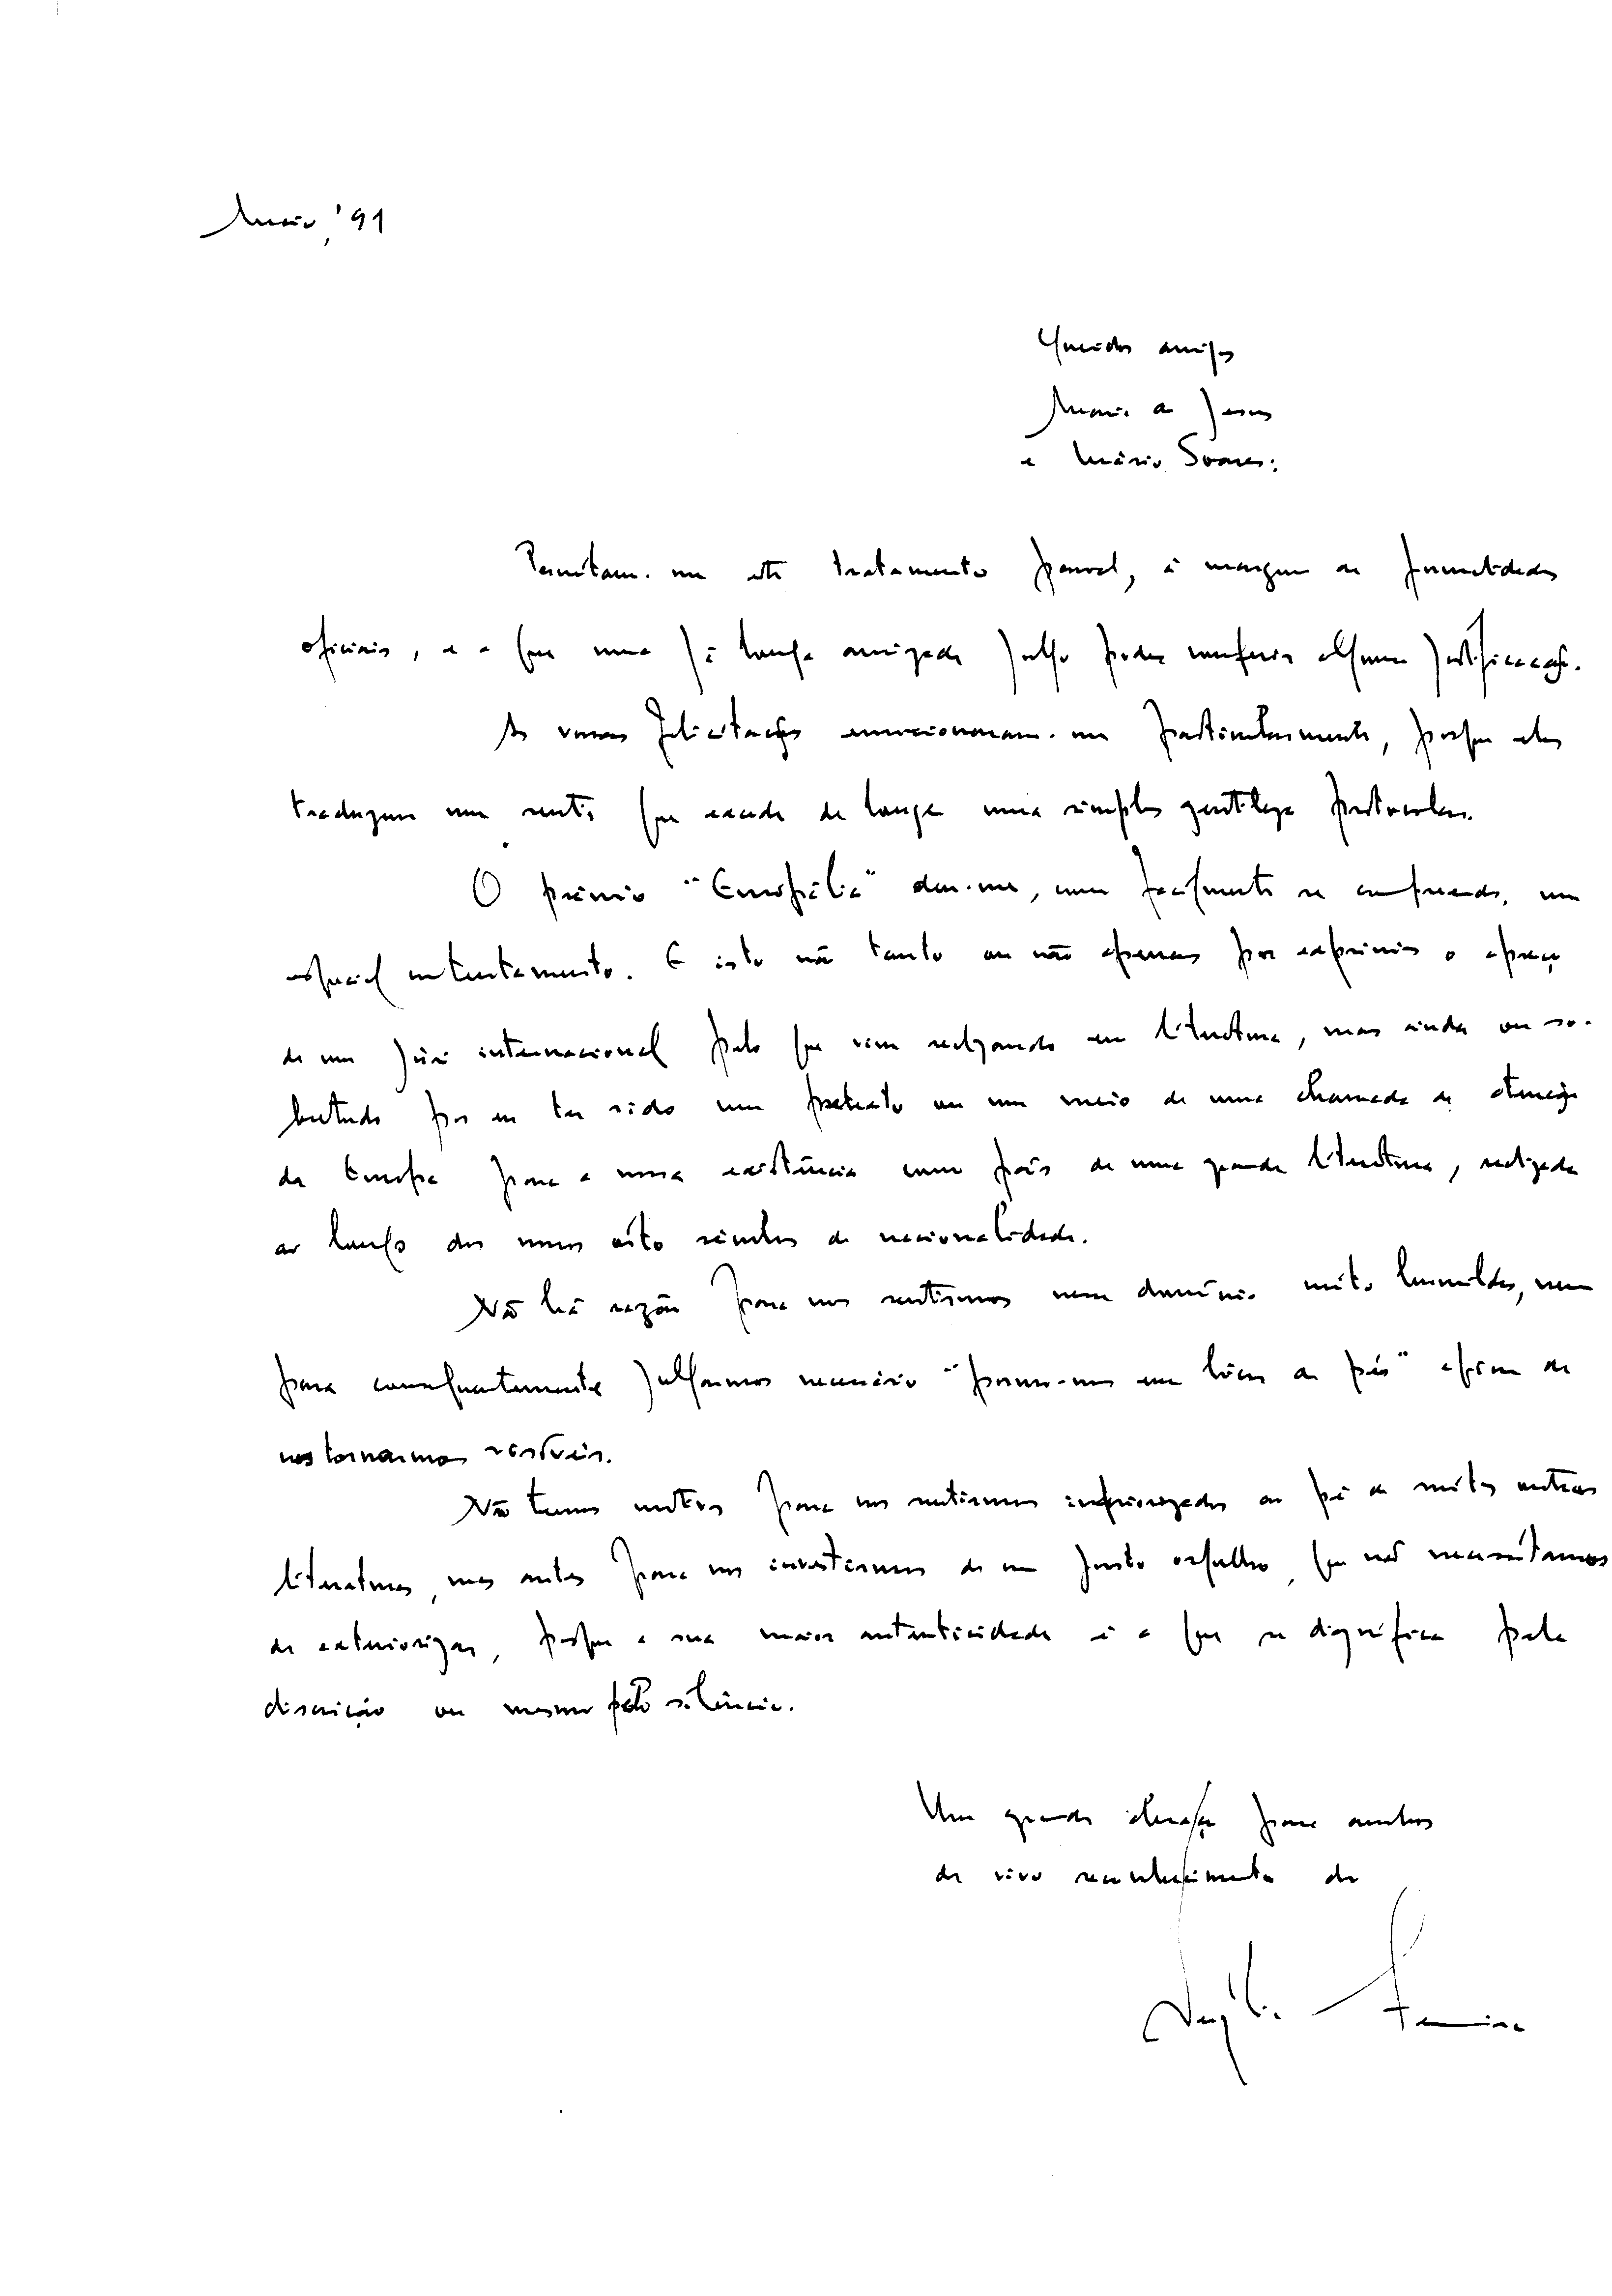 Maio, '91
Queridos amigos
Maria de Jesus
e Mário Soares:
Permitam-me este tratamento pessoal, à margem de formalidades
oficiais, e a que uma já longa amizade julgo poder conferir alguma justificação.
As vossas felicitações emocionaram-me particularmente, porque elas
traduzem um sentir que excede de longe uma simples gentileza protocolar.
O prémio "Europália" deu-me, como facilmente se compreende, um
especial contentamento. E isto não tanto ou não apenas por exprimir o apreço
de um júri internacional pelo que venho realizando em literatura, mas ainda ou so-
bretudo por eu ter sido um pretexto ou um meio de uma chamada de atenção
da Europa para a nossa existência como país de uma grande literatura, realizada
ao longo dos nossos oito séculos de nacionalidade.
Não há razão para nos sentirmos nem muito humildes, nem
para consequentemente julgarmos necessário "pormo-nos em bicos de pés" a fim de
nos tornarmos visíveis.
Não temos motivos para nos sentirmos inferiorizados ao pé de muitas outras
literaturas, mas antes para nos investirmos de um justo orgulho, que não necessitamos
de exteriorizar, porque a sua maior autenticidade é a que se dignifica pela
discrição ou mesmo pelo silêncio.
Um grande abraço para ambos
de vivo reconhecimento do
Vergílio Ferreira